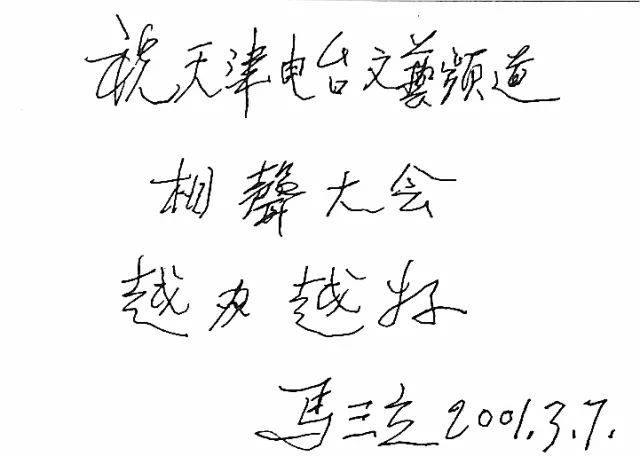 祝天津电台文藝频道
相聲大会
越办越好
馬三立 2001.3.7.